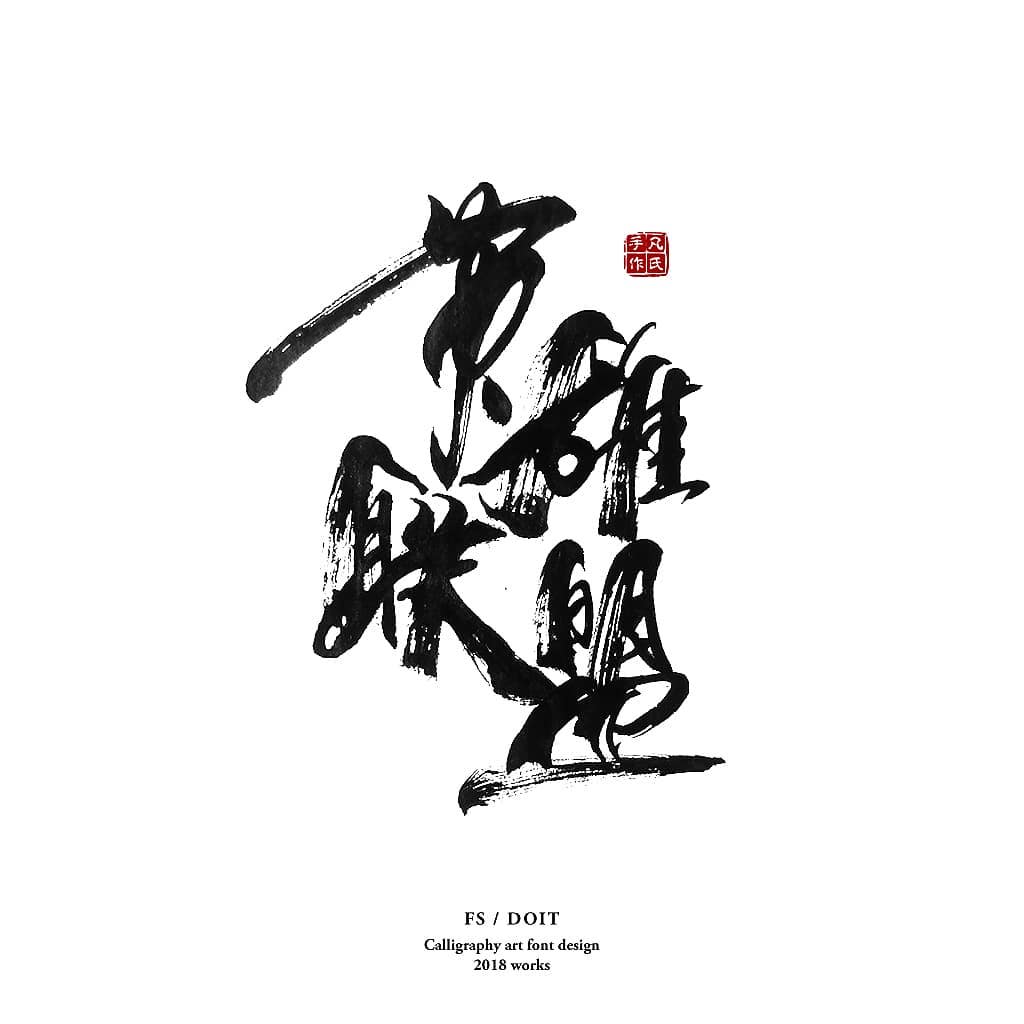 英雄
联盟
凡氏
手作
FS / DOIT
Calligraphy art font design
2018 works